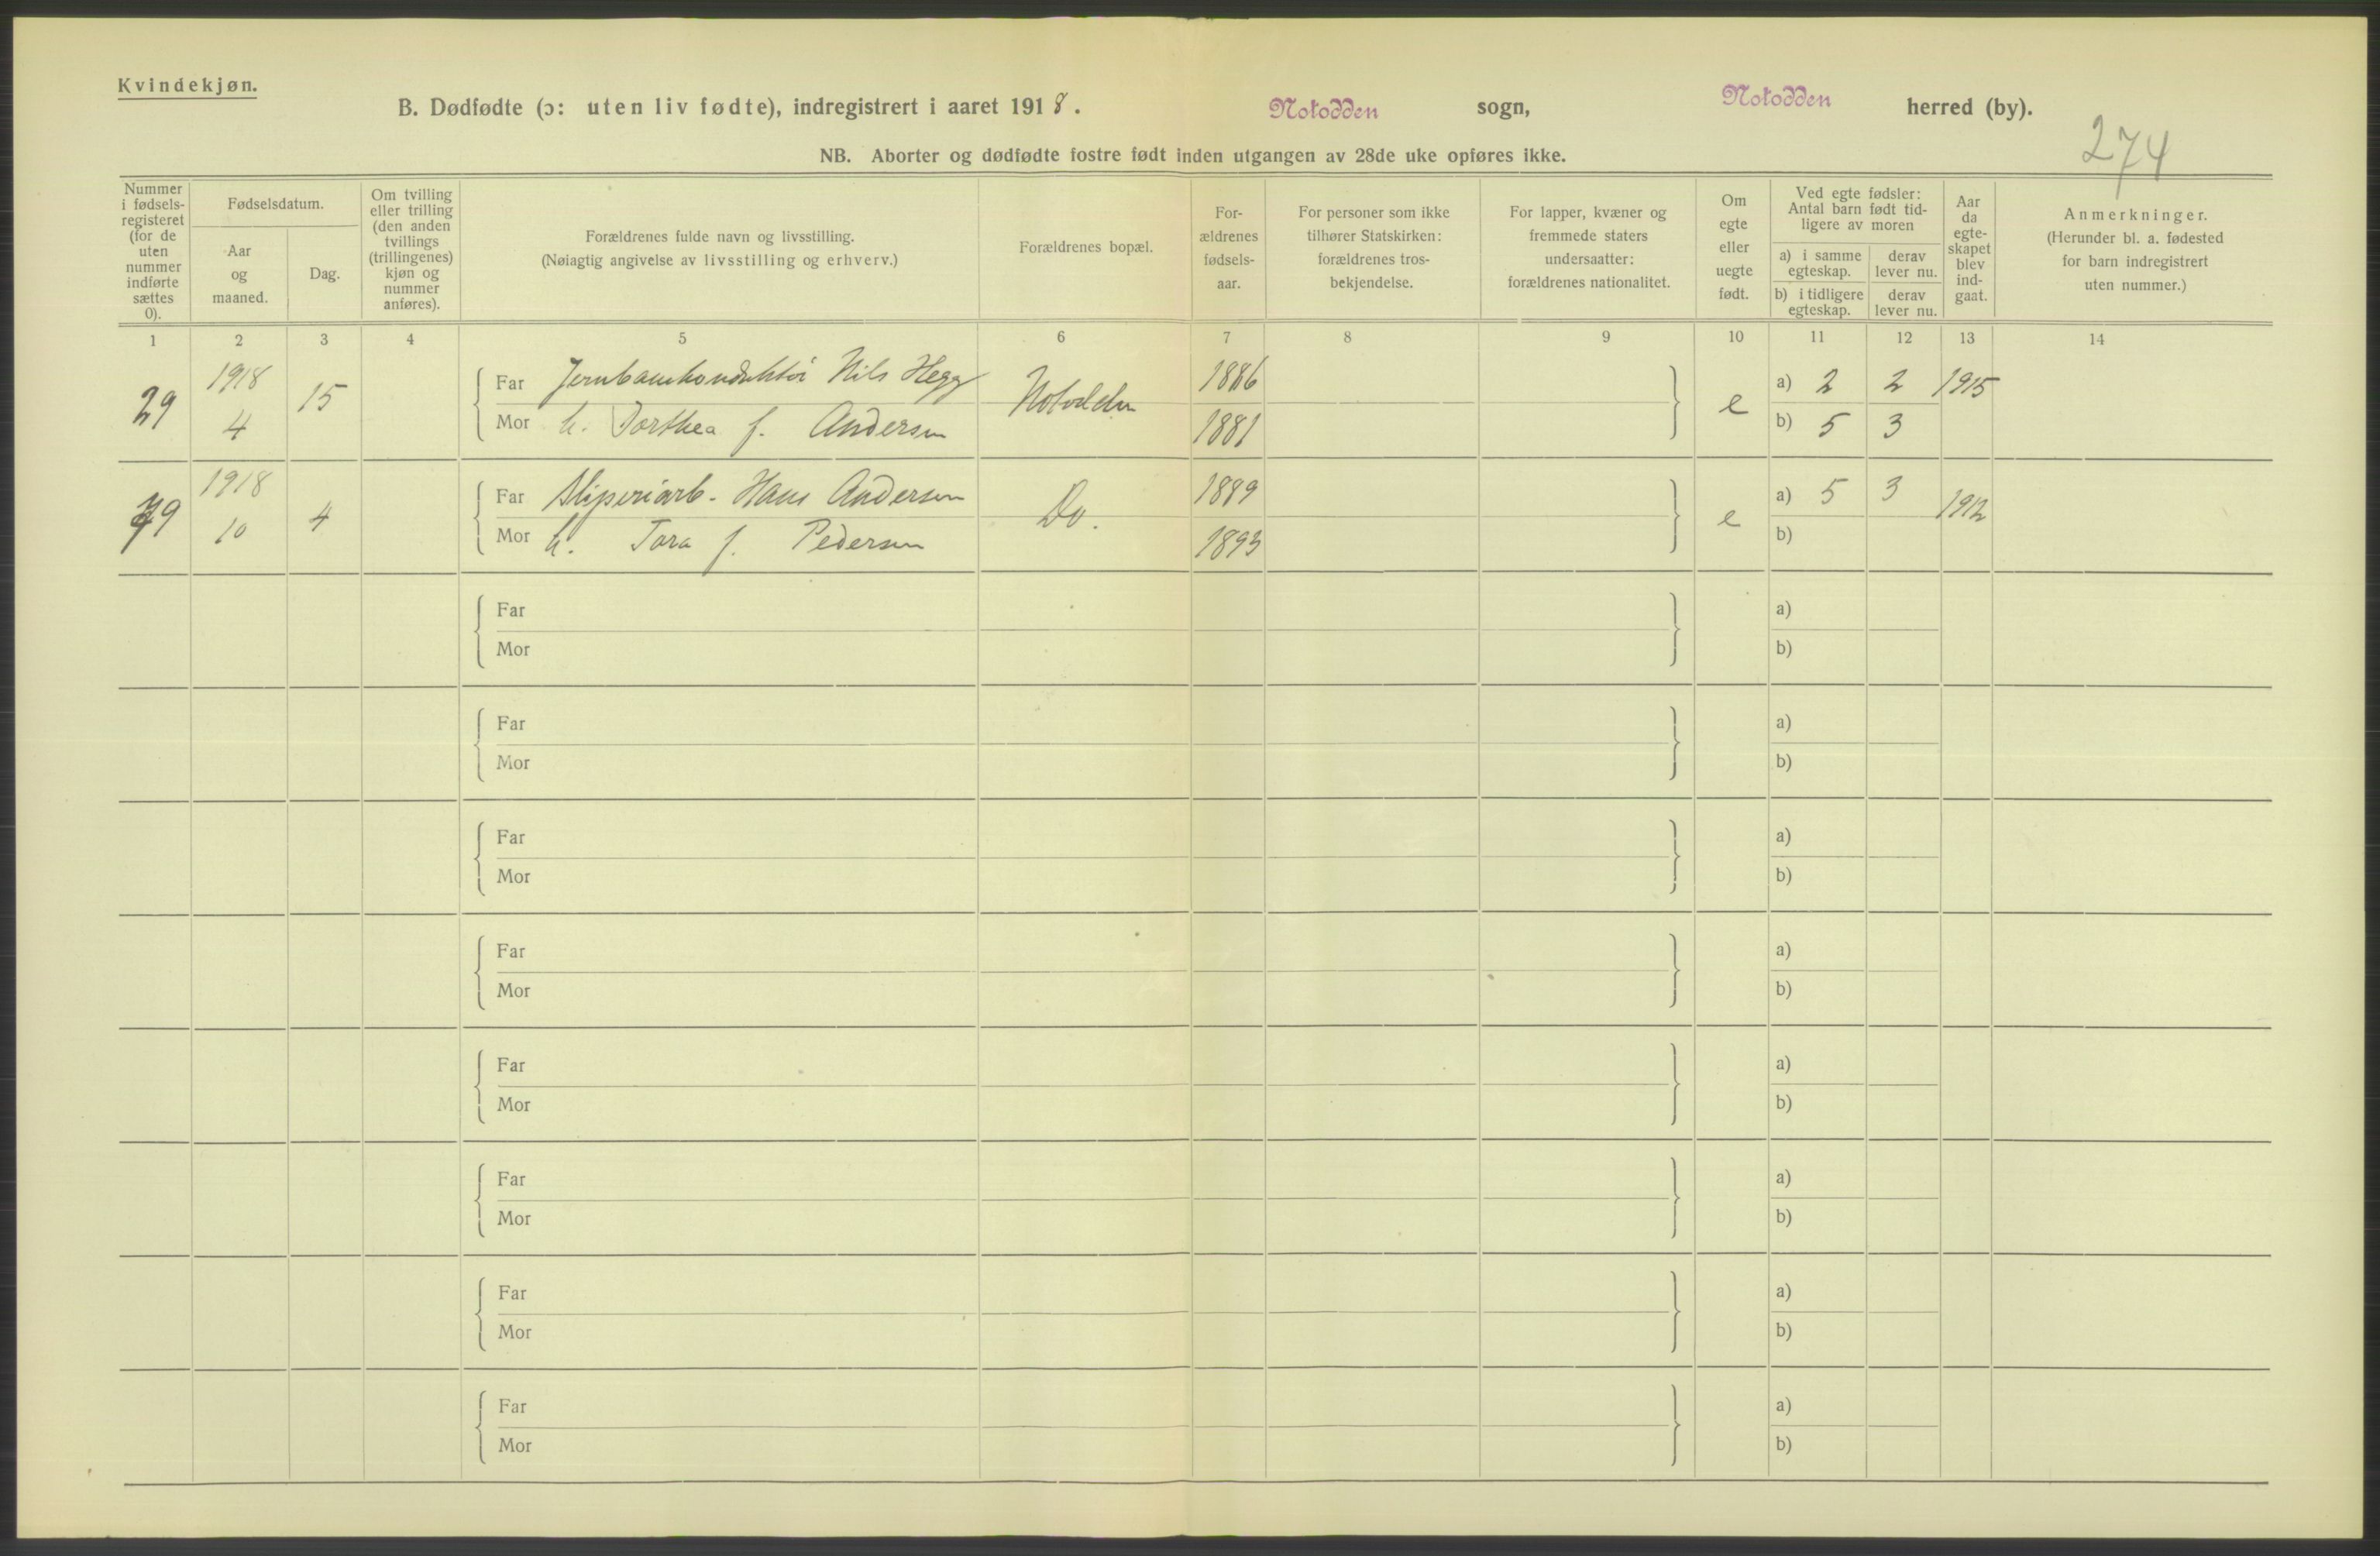 Kvindekjøn.
B. Dødfødte (ɔ: uten liv fødte), indregistrert i aaret 1918. Notodden sogn, Notodden herred (by).
274
NB. Aborter og dødfødte fostre født inden utgangen av 28de uke opføres ikke.
Nummer i fødsels-registeret (for de uten nummer indførte sættes 0).
Fødselsdatum.
Aar og maaned.
Dag.
Om tvilling eller trilling (den anden tvillings (trillingenes) kjøn og nummer anføres).
Forældrenes fulde navn og livsstilling.
(Nøiagtig angivelse av livsstilling og erhverv.)
Forældrenes bopæl.
For-ældrenes fødsels-aar.
For personer som ikke tilhører Statskirken: forældrenes tros-bekjendelse.
For lapper, kvæner og fremmede staters undersaatter: forældrenes nationalitet.
Om egte eller uegte født.
Ved egte fødsler: Antal barn født tid-ligere av moren
a) i samme egteskap.
derav lever nu.
b) i tidligere egteskap.
derav lever nu.
Aar da egte-skapet blev ind-gaat.
Anmerkninger.
(Herunder bl. a. fødested for barn indregistrert uten nummer.)
1 2 3 4 5 6 7 8 9 10 11 12 13 14
29 1918 4 15 Far Jernbanekonduktør Nils Hegg Notodden 1886 e a) 2 2 1915
Mor h. Dorthea f. Andersen 1881 b) 5 3
79 1918 10 4 Far Sliperiarb. Hans Andersen Do. 1889 e a) 5 3 1912
Mor h. Tora f. Pedersen 1893 b)
Far a)
Mor b)
Far a)
Mor b)
Far a)
Mor b)
Far a)
Mor b)
Far a)
Mor b)
Far a)
Mor b)
Far a)
Mor b)
Far a)
Mor b)